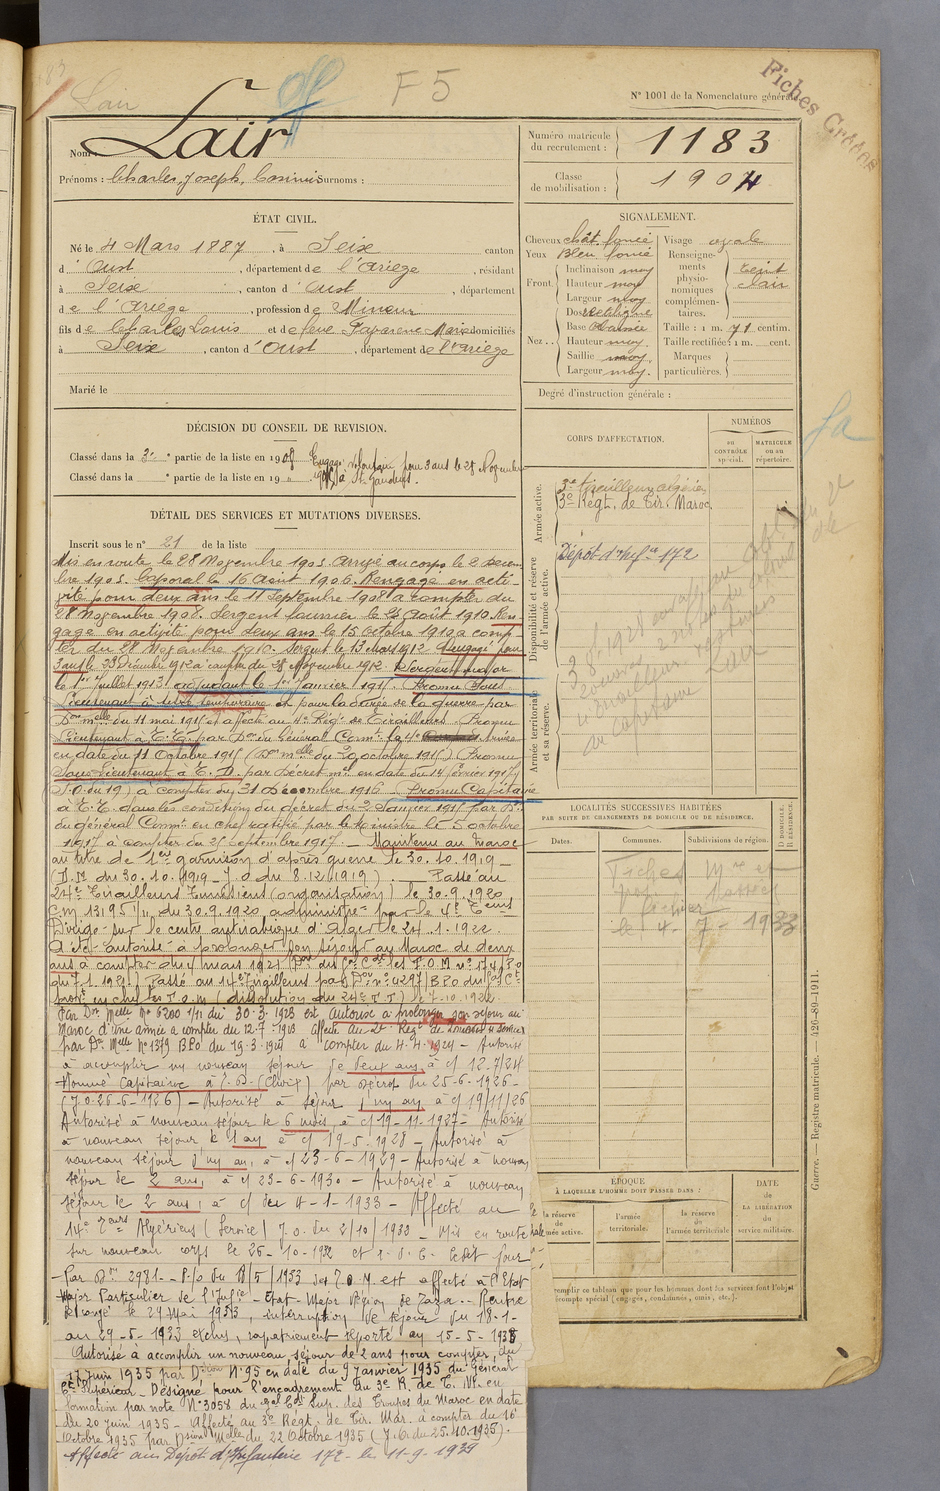 Lair
off
F 5
N° 1001 de la Nomenclature générale
Fiches
Nom : Lair
Numéro matricule du recrutement : 1183
Prénoms : Charles, Joseph, surnoms :
Classe de mobilisation : 1904
ÉTAT CIVIL.
Né le 4 Mars 1887, à Seix canton
d'Oust, département de l'Ariège, résidant
à Seix, canton d'Oust, département
de l'Ariège, profession de Mineur
fils de Charles Louis et de feue Marie domiciliés
à Seix, canton d'Oust, département de l'Ariège
Marié le
SIGNALEMENT.
Cheveux chât. foncé Visage ovale
Yeux Bleu foncé
Front. Inclinaison moy
Hauteur moy
Largeur moy
Nez.. Dos rectiligne
Base
Hauteur moy.
Saillie moy.
Largeur moy.
Renseignements physionomiques complémentaires. teint clair
Taille : 1 m. 71 centim.
Taille rectifiée : 1 m. cent.
Marques particulières.
Degré d'instruction générale :
DÉCISION DU CONSEIL DE REVISION.
Classé dans la 3e partie de la liste en 1908 Engagé volontaire pour 3 ans le 28 Novembre
Classé dans la " partie de la liste en 19 " 1905 à St Gaudens.
CORPS D'AFFECTATION.
NUMÉROS
au CONTRÔLE spécial.
MATRICULE ou au répertoire.
Armée active.
3e Régt. de Tir. Maroc.
Disponibilité et réserve de l'armée active.
Dépôt d'Infie 172
Armée territoriale et sa réserve.
du capitaine Lair
DÉTAIL DES SERVICES ET MUTATIONS DIVERSES.
Inscrit sous le n° 21 de la liste
Mis en route le 28 Novembre 1905. Arrivé au corps le 2 Décem-
bre 1905. Caporal le 16 Août 1906. Rengagé en acti-
vité pour deux ans le 11 Septembre 1908 à compter du
28 Novembre 1908. Sergent fourrier le 25 Août 1910. Ren-
gagé en activité pour deux ans le 15 Octobre 1910 à comp-
ter du 28 Novembre 1910. Sergent le 13 Mars 1912. Rengagé pour
3 ans le 23 Décembre 1912 à compter du 28 Novembre 1912. Sergent major
le 1er Juillet 1913. adjudant le 1er Janvier 1915. Promu Sous
Lieutenant à titre temporaire et pour la durée de la guerre par
Don melle du 11 mai 1915 et affecté au 4e Régt de Tirailleurs. Promu
Lieutenant à T. T. par Don du Général Commt la 4e Armée
en date du 11 Octobre 1915 (Don melle du 29 octobre 1915) Promu
Sous Lieutenant à T. D. par Décret mel en date du 14 février 1917
(J.O. du 19) à compter du 31 Décembre 1916. Promu Capitaine
à T. T. dans les conditions du décret du 2 Janvier 1915 par Don
du général Commt en chef ratifié par le Ministre le 5 octobre
1917 à compter du 25 Septembre 1917. — Maintenu au Maroc
au titre de 1ere garnison d'après guerre le 30.10.1919 —
(D.M. du 30.10.1919 – J.O du 8.12.1919). — Passé au
24e Tirailleurs Tunisiens (organisation) le 30.9.1920
C.M. 13195 1/11 du 30.9.1920 administré par le 4e Teurs
Dirigé sur le centre d'Alger le 24.1.1922.
A été autorisé à prolonger son séjour au Maroc de deux
ans à compter du 4 mars 1921
du 7.1.1921) Passé au 14e Tirailleurs par Don n° 4297/BPO du Gal Ct
prov. en chef les T.O.M (dissolution du 24e T.T) le 1.10.1922
Par Don Melle N° 6200 1/11 du 30.3.1923 est autorisé à prolonger son séjour au
Maroc d'une année à compter du 12.7.1923 affecté au
par Don Melle N° 1379 BPO du 19.3.1924 à compter du 4.4.1924 – Autorisé
à accomplir un nouveau séjour de deux ans, à c/ 12.7/24
Nommé Capitaine à T.D. (Choix) par décret du 25-6-1926 –
(J.O. 26-6-1926) – Autorisé à séjour 1 un an, à c/ 19/11/26
Autorisé à nouveau séjour de 6 mois, à c/ 19-11-1927 – Autorisé
à nouveau séjour de 1 an à c/ 19-5-1928 – Autorisé à
nouveau séjour d'un an, à c/ 23-6-1929 – Autorisé à nouveau
séjour de 2 ans, à c/ 23-6-1930 – Autorisé à nouveau
séjour de 2 ans, à c/ du 4-1-1933 – Affecté au
14e Teurs Algériens (Service) J.O. du 2/10/1933 – Mis en route
sur nouveau corps le 26-10-1932
Par Don 2981 – P/o du 18/5/1933 des T.O.M est affecté à l'Etat
Major Particulier de l'Infie – Etat-Major Région de Taza. – Rentre
le 29 Mai 1933, interruption de séjour du 18-1-
au 29-5-1933 exclus, rapatriement reporté au 15-5-1935
Autorisé à accomplir un nouveau séjour de 2 ans pour compter du
Juin 1935 par Don N° 95 en date du 9 Janvier 1935 du Général
Ct Supérieur. Désigné pour l'encadrement du 3e R. de T. M. en
formation par note N° 3058 du Gal Cdt Sup. des Troupes du Maroc en date
du 20 Juin 1935 – Affecté au 3e Régt. de Tir. Mar. à compter du 16
Octobre 1935 par Dsion Melle du 22 Octobre 1935 (J.O. du 25.10.1935).
Affecté au Dépôt d'Infanterie 172 le 11-9-1939
LOCALITÉS SUCCESSIVES HABITÉES
PAR SUITE DE CHANGEMENTS DE DOMICILE OU DE RÉSIDENCE.
Dates. Communes. Subdivisions de région. D. DOMICILE. R. RÉSIDENCE.
Fiches
le 4-7-1933
ÉPOQUE
À LAQUELLE L'HOMME DOIT PASSER DANS :
la réserve de l'armée active.
l'armée territoriale.
la réserve de l'armée territoriale
DATE de LA LIBÉRATION du service militaire.
remplir ce tableau que pour les hommes dont les services font l'objet
compte spécial (engagés, condamnés, omis, etc.).
Guerre. — Registre matricule. — 426-89-1911.